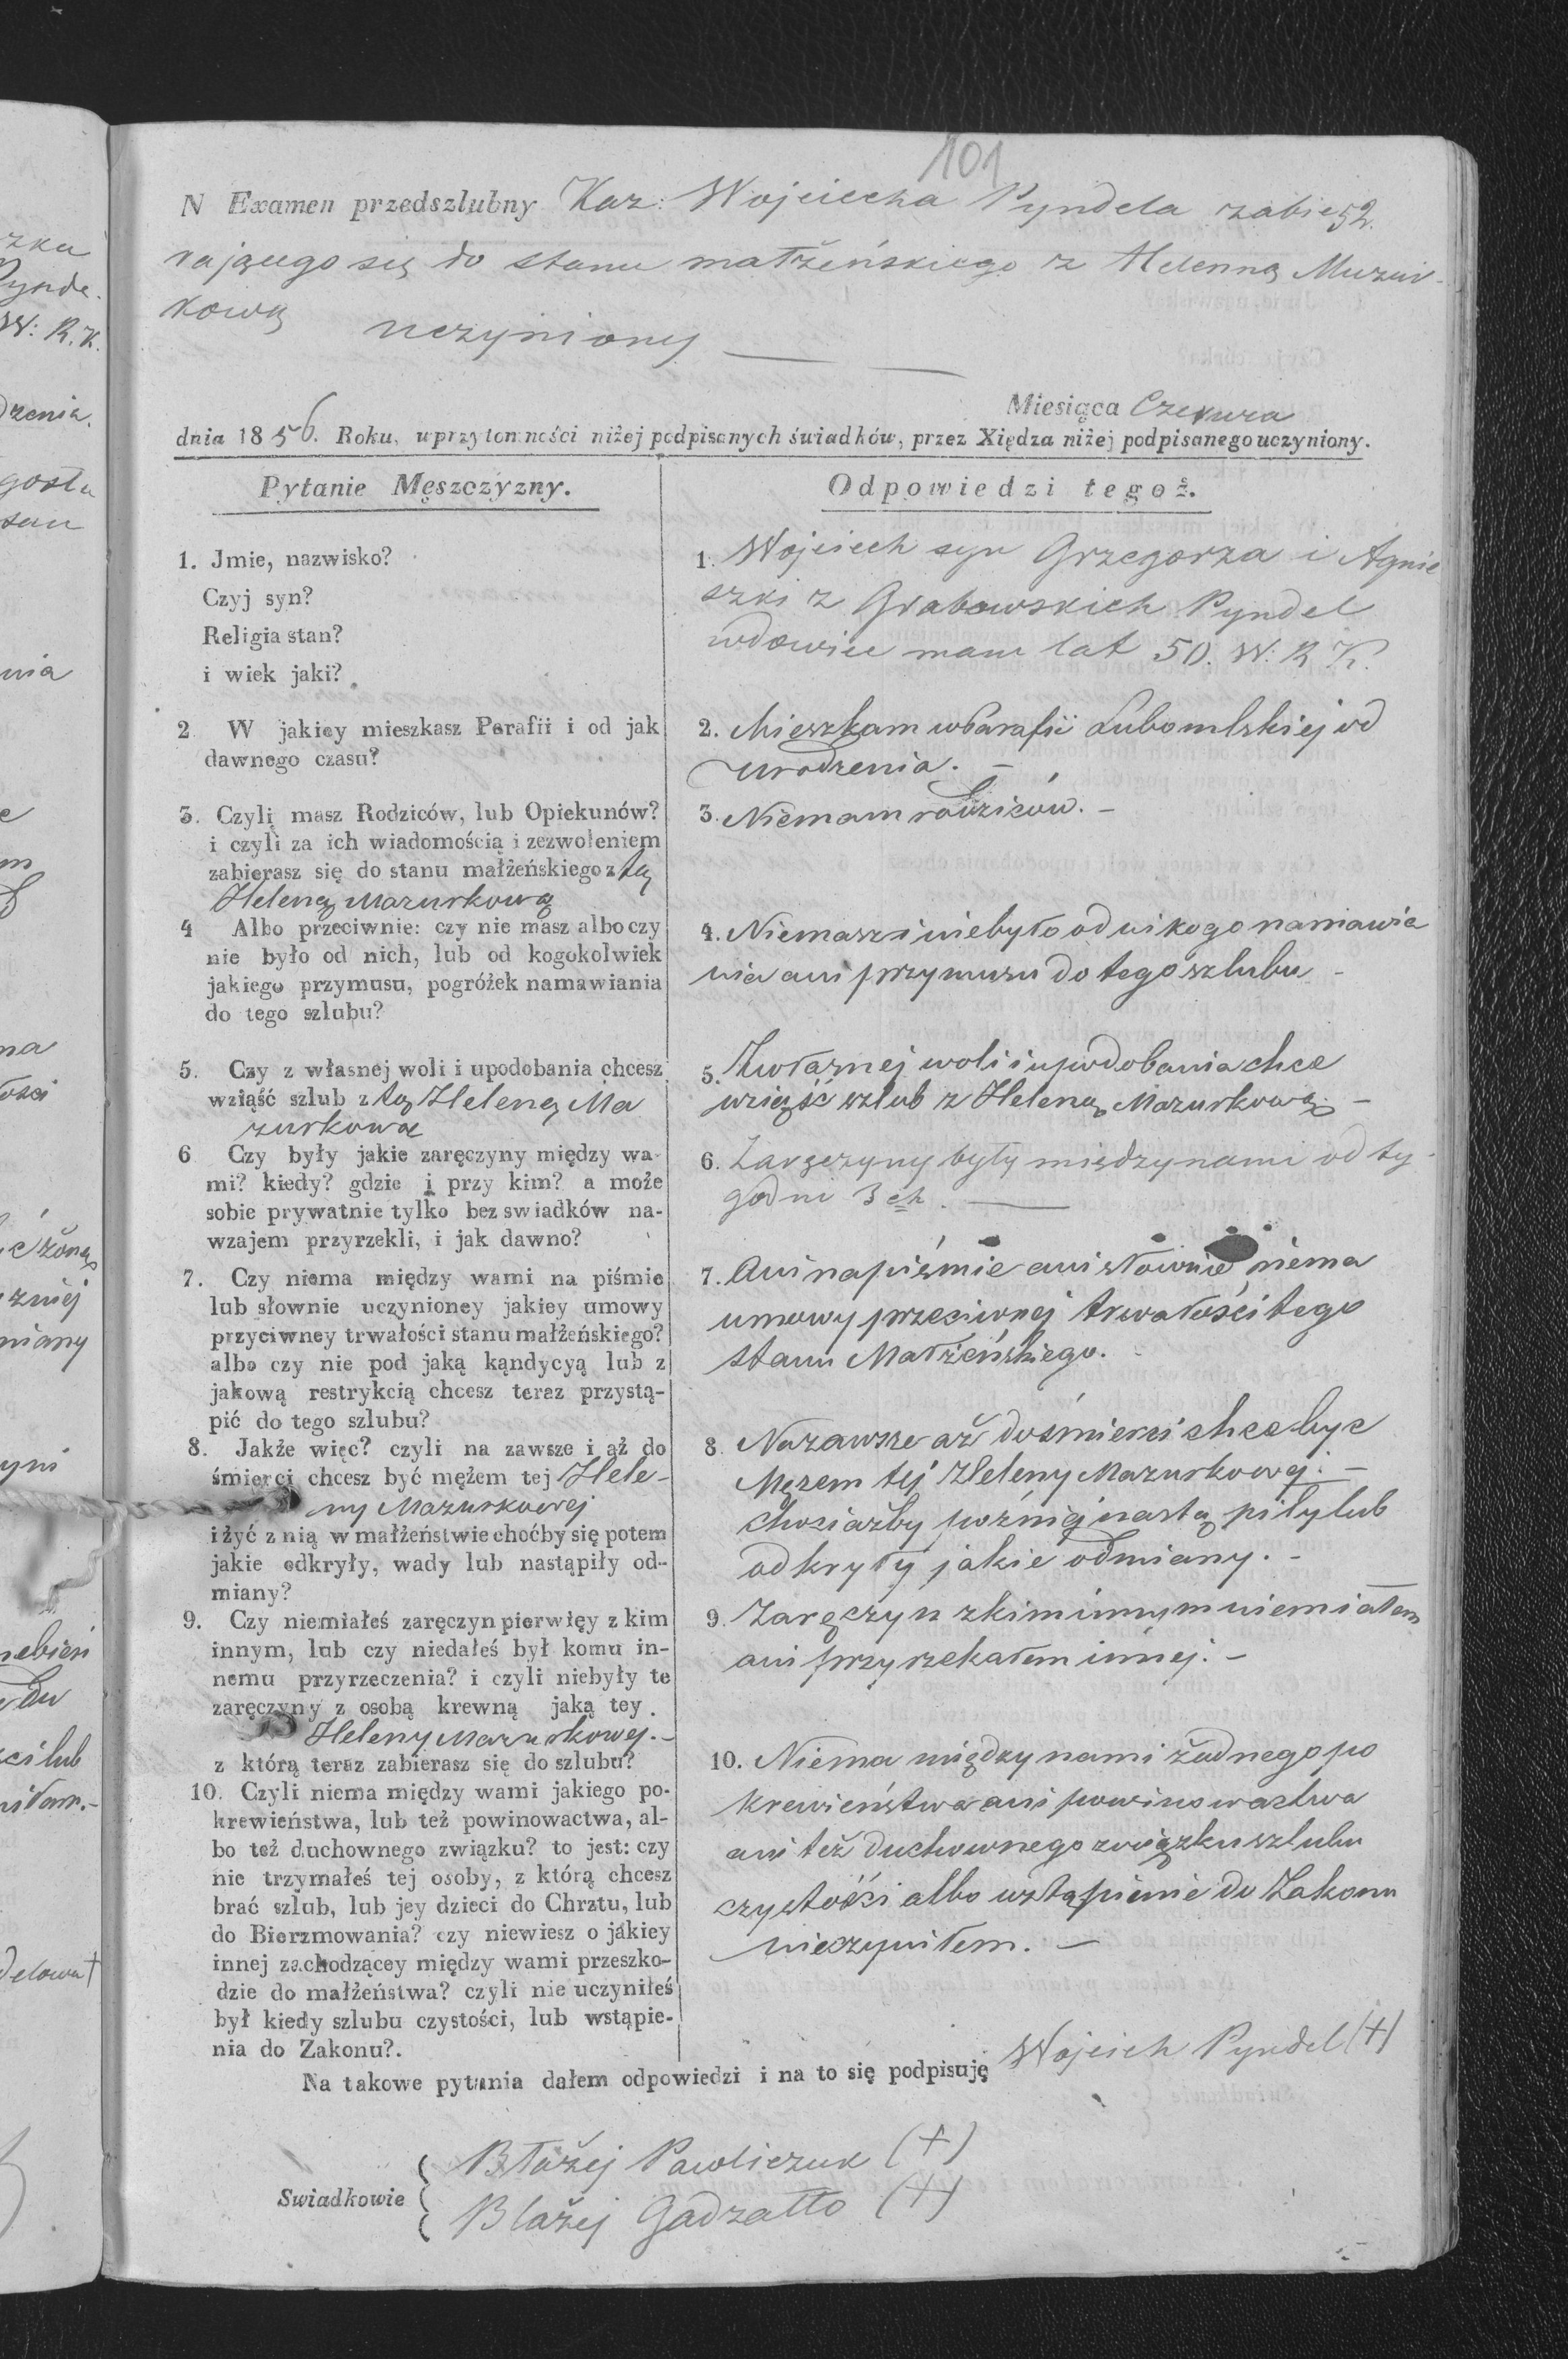 101
N Examen przedszlubny Kaz: Wojciecha Pyndela zabie 52.
rającego się do stanu małżeńskiego z Helenną Muzur-
kową uczyniony
Miesiąca Czerwca
dnia 1856. Roku, w przytomności niżej podpisanych świadków, przez Xiędza niżej podpisanego uczyniony.
Pytanie Męszczyzny.
1. Jmie, nazwisko?
Czyj syn?
Religia stan?
i wiek jaki?
2 W jakiey mieszkasz Parafii i od jak
dawnego czasu?
3. Czyli masz Rodziców, lub Opiekunów?
i czyli za ich wiadomością i zezwoleniem
zabierasz się do stanu małżeńskiego z tą
Heleną Mazurkową
4 Albo przeciwnie: czy nie masz albo czy
nie było od nich, lub od kogokolwiek
jakiego przymusu, pogróżek namawiania
do tego szlubu?
5. Czy z własnej woli i upodobania chcesz
wziąść szlub z tą Heleną Ma
zurkową
6 Czy były jakie zaręczyny między wa-
mi? kiedy? gdzie i przy kim? a może
sobie prywatnie tylko bez swiadków na-
wzajem przyrzekli, i jak dawno?
7. Czy niema między wami na piśmie
lub słownie uczynioney jakiey umowy
przyciwney trwałości stanu małżeńskiego?
albo czy nie pod jaką kąndycyą lub z
jakową restrykcią chcesz teraz przystą-
pić do tego szlubu?
8. Jakże więc? czyli na zawsze i aż do
śmierci chcesz być mężem tej Hele-
ny Mazurkowej
i żyć z nią w małżeństwie choćby się potem
jakie odkryły, wady lub nastąpiły od-
miany?
9. Czy niemiałeś zaręczyn pierwięy z kim
innym, lub czy niedałeś był komu in-
nemu przyrzeczenia? i czyli niebyły te
zaręczyny z osobą krewną jaką tey
Heleny Mazurkowej.-
z którą teraz zabierasz się do szlubu?
10. Czyli niema między wami jakiego po-
krewieństwa, lub też powinowactwa, al-
bo też duchownego związku? to jest: czy
nie trzymałeś tej osoby, z którą chcesz
brać szlub, lub jey dzieci do Chrztu, lub
do Bierzmowania? czy niewiesz o jakiey
innej zachodzącey między wami przeszko-
dzie do małżeństwa? czyli nie uczyniłeś
był kiedy szlubu czystości, lub wstąpie-
nia do Zakonu?.
Odpowiedzi tegoż.
1. Wojciech syn Grzegorza i Agnie
szki z Grabowskich Pyndel
wdowiec mam lat 50. W: R K.
2. Mieszkam w Parafii Lubomlskiej od
urodzenia. -
3. Niemam rodziców. -
4. Niemasz i niebyło od nikogo namawia
nia ani przymusu do tego szlubu -
5. Zwłasnej woli i upodobania chce
wziąść szlub z Heleną Mazurkową. -
6. Zaręczyny były między nami od ty-
godni 3ch. -
7. Ani na piśmie ani słownie niema
umowy przeciwnej trwałości tego
stanu Małżeńskiego. -
8 Nazawsze aż do śmierci chcę być
Mężem tej Heleny Mazurkowej. -
chociażby poźniej nastąpiły lub
odkryły jakie odmiany. -
9. Zaręczyn z kim innym niemiałem
ani przyrzekałem innej. -
10. Niema między nami żadnego po
krewieństwa ani powinowactwa
ani też duchownego związku szlubu
czystości albo wstąpienie do Zakonu
nieczyniłem. -
Na takowe pytania dałem odpowiedzi i na to się podpisuję Wojciech Pyndel (+)
Swiadkowie
Błażej Pawliczuk (+)
Błażej Gadzałło (+)